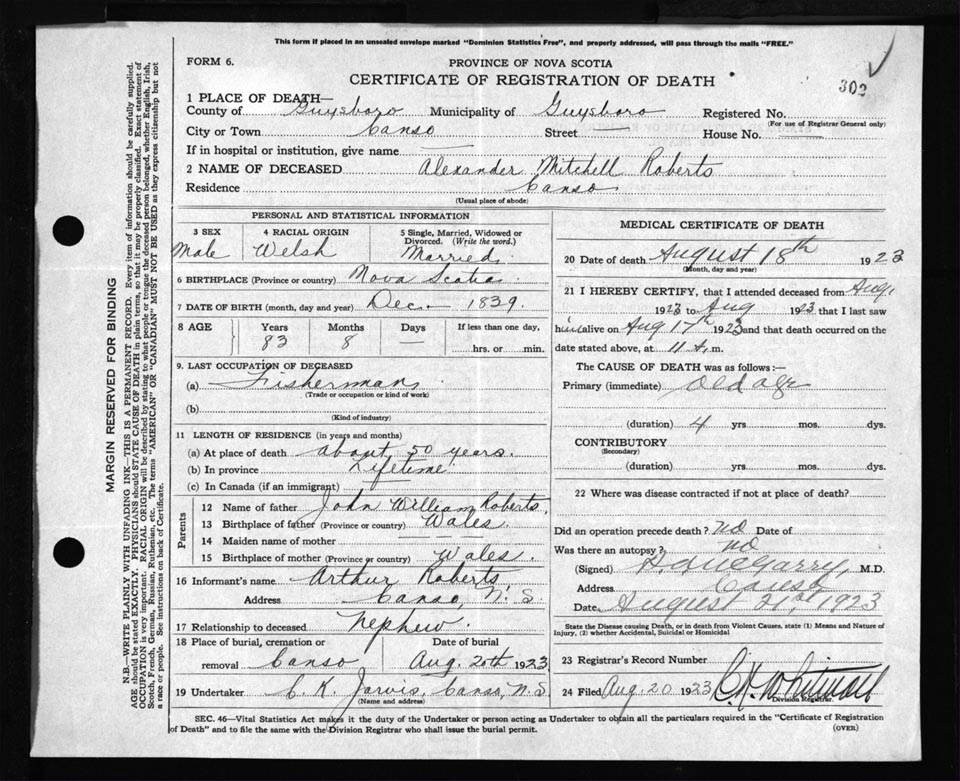 This form if placed in an unsealed envelope marked "Dominion Statistics Free", and properly addressed, will pass through the mails "FREE."
FORM 6.
PROVINCE OF NOVA SCOTIA
CERTIFICATE OF REGISTRATION OF DEATH
302
1 PLACE OF DEATH—
County of Guysboro Municipality of Guysboro Registered No.
(For use of Registrar General only)
City or Town Canso Street — House No. —
If in hospital or institution, give name —
2 NAME OF DECEASED Alexander Mitchell Roberts
Residence Canso
(Usual place of abode)
PERSONAL AND STATISTICAL INFORMATION
3 SEX Male
4 RACIAL ORIGIN Welsh
5 Single, Married, Widowed or Divorced. (Write the word.) Married.
6 BIRTHPLACE (Province or country) Nova Scotia
7 DATE OF BIRTH (month, day and year) Dec. 1839.
8 AGE Years Months Days If less than one day,
83 8 — hrs. or min.
9. LAST OCCUPATION OF DECEASED
(a) Fisherman
(Trade or occupation or kind of work)
(b)
(Kind of industry)
11 LENGTH OF RESIDENCE (in years and months)
(a) At place of death about 50 years.
(b) In province Lifetime.
(c) In Canada (if an immigrant) —
Parents
12 Name of father John William Roberts,
13 Birthplace of father (Province or country) Wales.
14 Maiden name of mother — — — —
15 Birthplace of mother (Province or country) Wales.
16 Informant's name Arthur Roberts,
Address Canso, N. S.
17 Relationship to deceased Nephew.
18 Place of burial, cremation or removal Canso Date of burial Aug. 20th 1923
19 Undertaker C. K. Jarvis, Canso, N. S.
(Name and address)
MEDICAL CERTIFICATE OF DEATH
20 Date of death August 18th 1923
(Month, day and year)
21 I HEREBY CERTIFY, that I attended deceased from Aug.
1923 to Aug 1923 that I last saw
him alive on Aug 17th 1923 and that death occurred on
date stated above, at 11 A. m.
The CAUSE OF DEATH was as follows:—
Primary (immediate) Old age
(duration) 4 yrs. mos. dys.
CONTRIBUTORY
(Secondary)
(duration) yrs. mos. dys.
22 Where was disease contracted if not at place of death?
Did an operation precede death? no Date of
Was there an autopsy? no
(Signed) McGarry, M.D.
Address Canso
Date August 21st 1923
State the Disease causing Death, or in death from Violent Causes, state (1) Means and Nature of Injury, (2) whether Accidental, Suicidal or Homicidal
23 Registrar's Record Number
24 Filed Aug. 20 1923 Whitman
Division Registrar.
SEC. 46—Vital Statistics Act makes it the duty of the Undertaker or person acting as Undertaker to obtain all the particulars required in the "Certificate of Registration
of Death" and to file the same with the Division Registrar who shall issue the burial permit.
(OVER)
MARGIN RESERVED FOR BINDING
N.B.—WRITE PLAINLY WITH UNFADING INK—THIS IS A PERMANENT RECORD. Every item of information should be carefully supplied.
AGE should be stated EXACTLY. PHYSICIANS should STATE CAUSE OF DEATH in plain terms, so that it may be properly classified. Exact statement of
OCCUPATION is very important. RACIAL ORIGIN will be described by stating to what people or tongue the deceased person belonged, whether English, Irish,
Scotch, French, German, Russian, Ruthenian, etc. The terms "AMERICAN" OR "CANADIAN" MUST NOT BE USED as they express citizenship but not
a race or people. See instructions on back of Certificate.